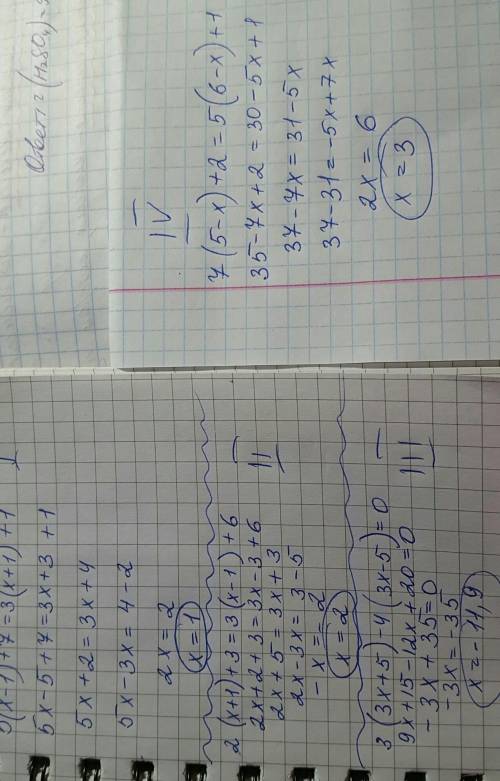 5(x-1)+7=3(x+1)+1
I
5x-5+7=3x+3+1
5x+2=3x+4
5x-3x=4-2
2x=2
x=1
2(x+1)+3=3(x-1)+6
II
2x+2+3=3x-3+6
2x+5=3x+3
2x-3x=3-5
-x=-2
x=2
3(3x+5)-4(3x-5)=0
III
9x+15-12x+20=0
-3x+35=0
-3x=-35
x=-11,9
Ответ: (H₂SO₄)=
IV
7(5-x)+2=5(6-x)+1
35-7x+2=30-5x+1
37-7x=31-5x
37-31=-5x+7x
2x=6
x=3